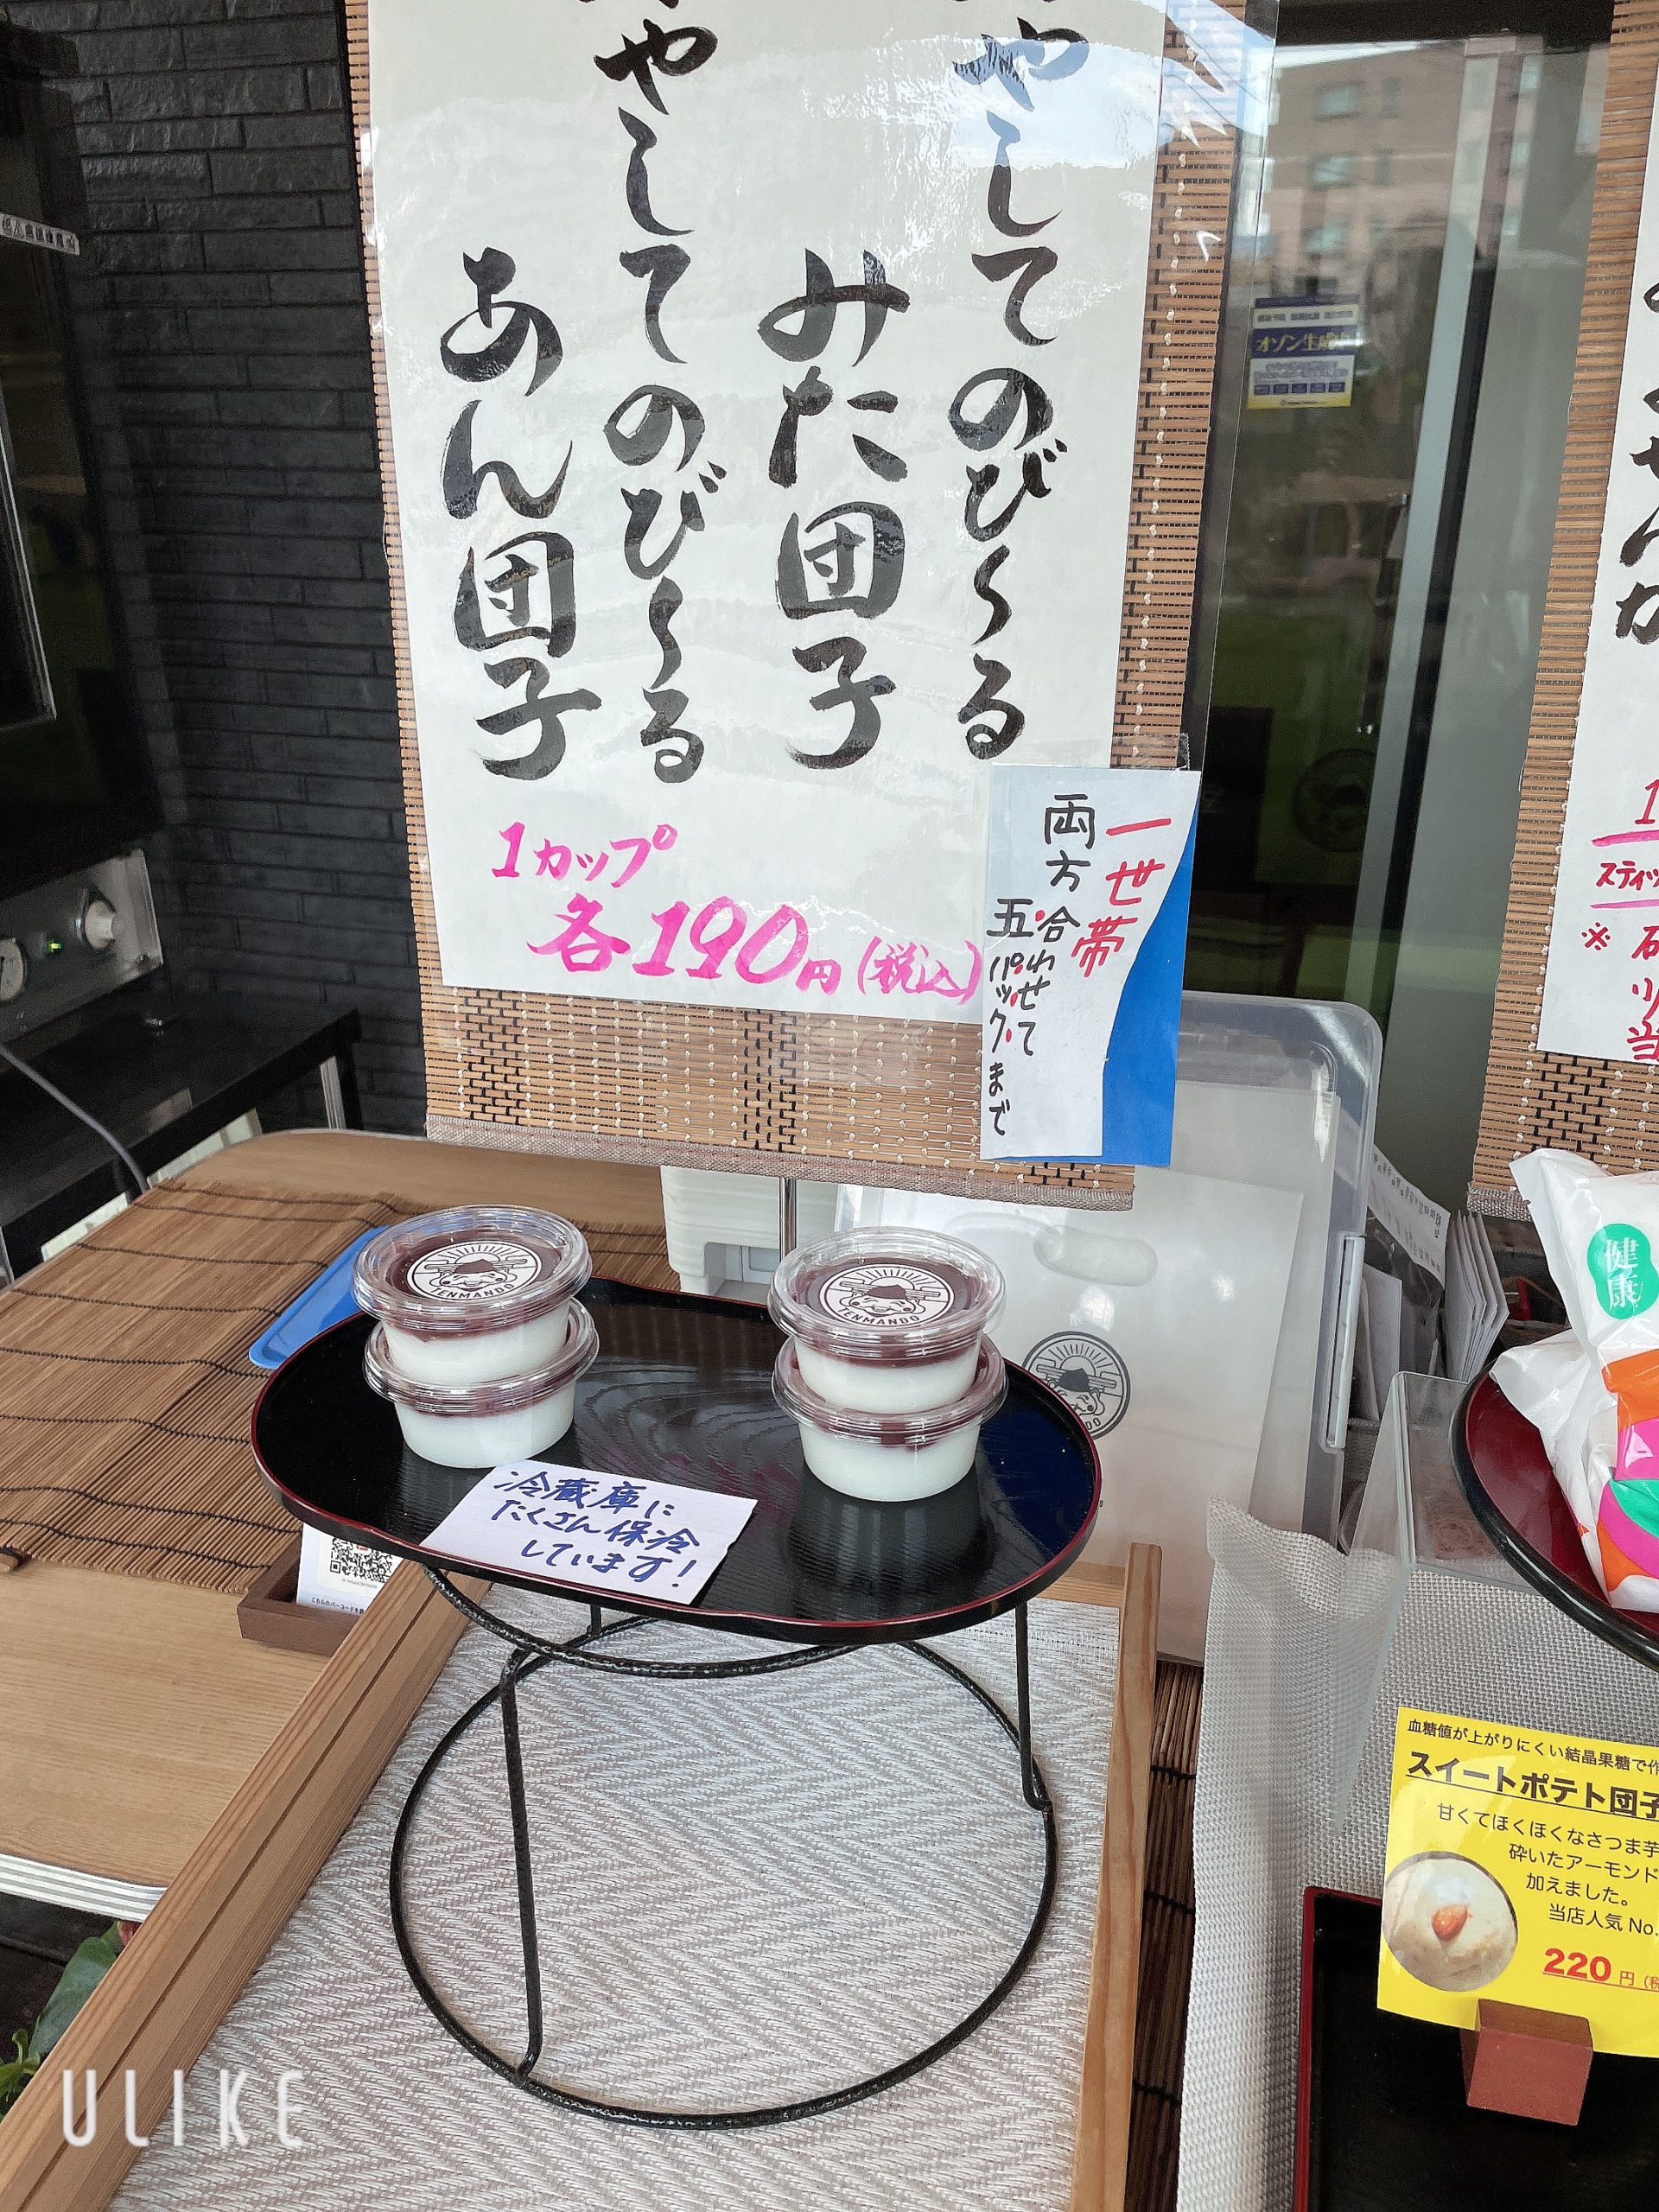 やしてのび〜る
みた団子
やしてのび〜る
あん団子
1カップ
各190円(税込)
一世帯
両方合わせて
五パックまで
オゾン生成
TENMANDO
TENMANDO
冷蔵庫に
たくさん保冷
しています!
健康
血糖値が上がりにくい結晶果糖で作
スイートポテト団子
甘くてほくほくなさつま芋
砕いたアーモンド
加えました。
当店人気No.
220円(税
1
スティッ
※
ULIKE